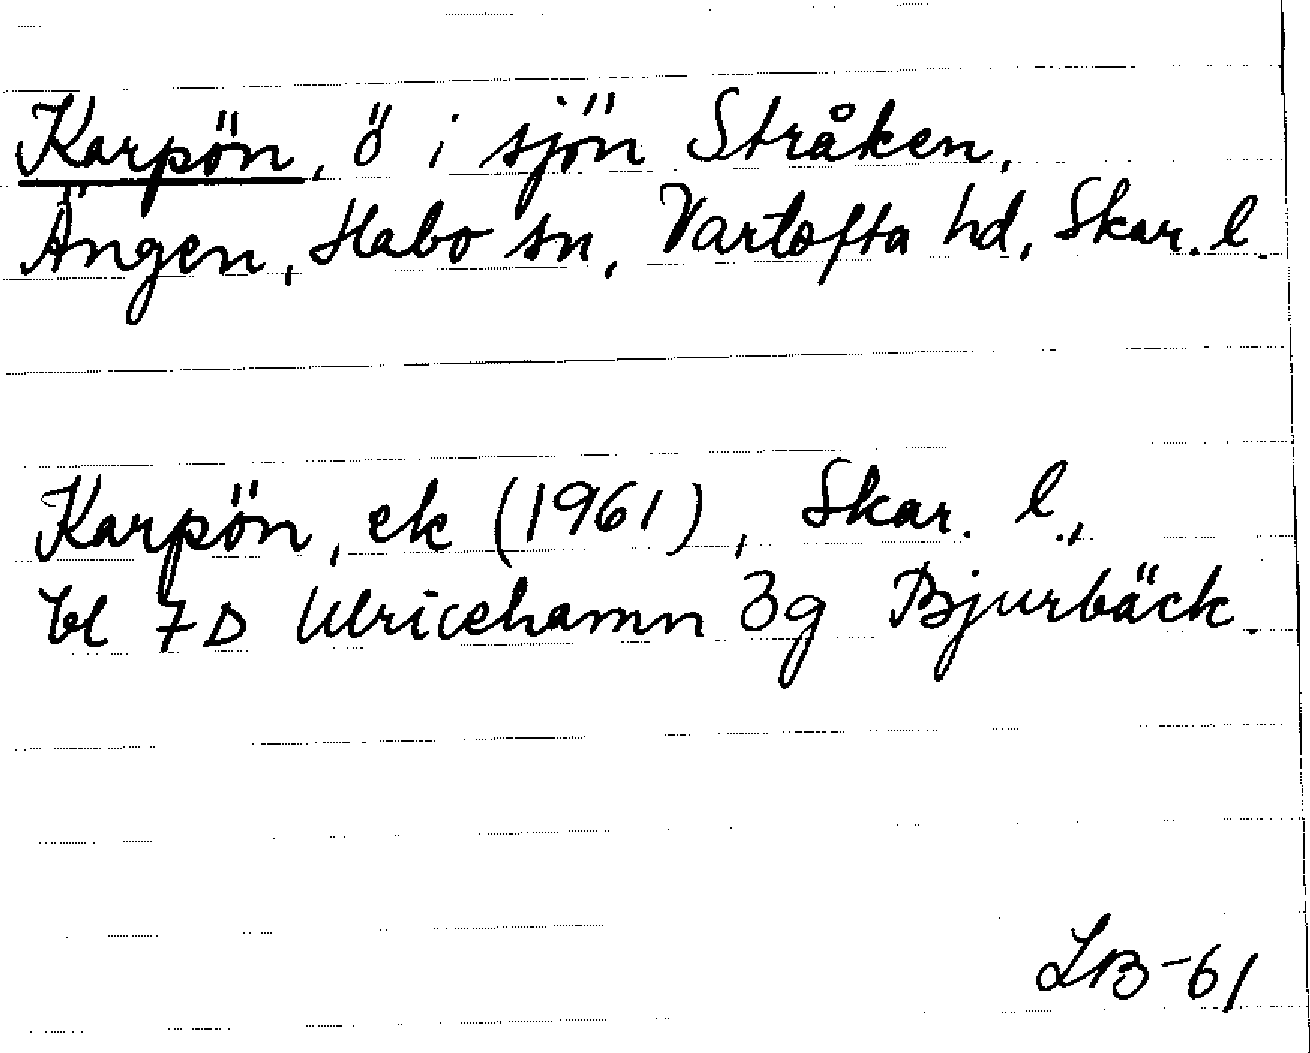 Karpön, ö i sjön Stråken,
Ängen, Habo sn, Vartofta hd, Skar. l.
Karpön, ek (1961), Skar. l.,
bl 7D Ulricehamn 3g Bjurbäck.
LB-61